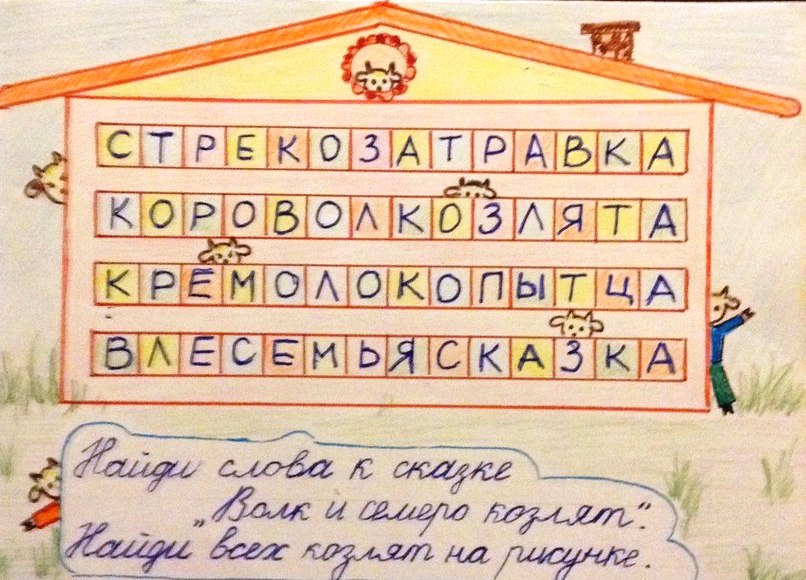 СТРЕКОЗАТРАВКА
КОРОВОЛКОЗЛЯТА
КРЕМОЛОКОПЫТЦА
ВЛЕСЕМЬЯСКАЗКА
Найди слова к сказке
„Волк и семеро козлят".
Найди всех козлят на рисунке.